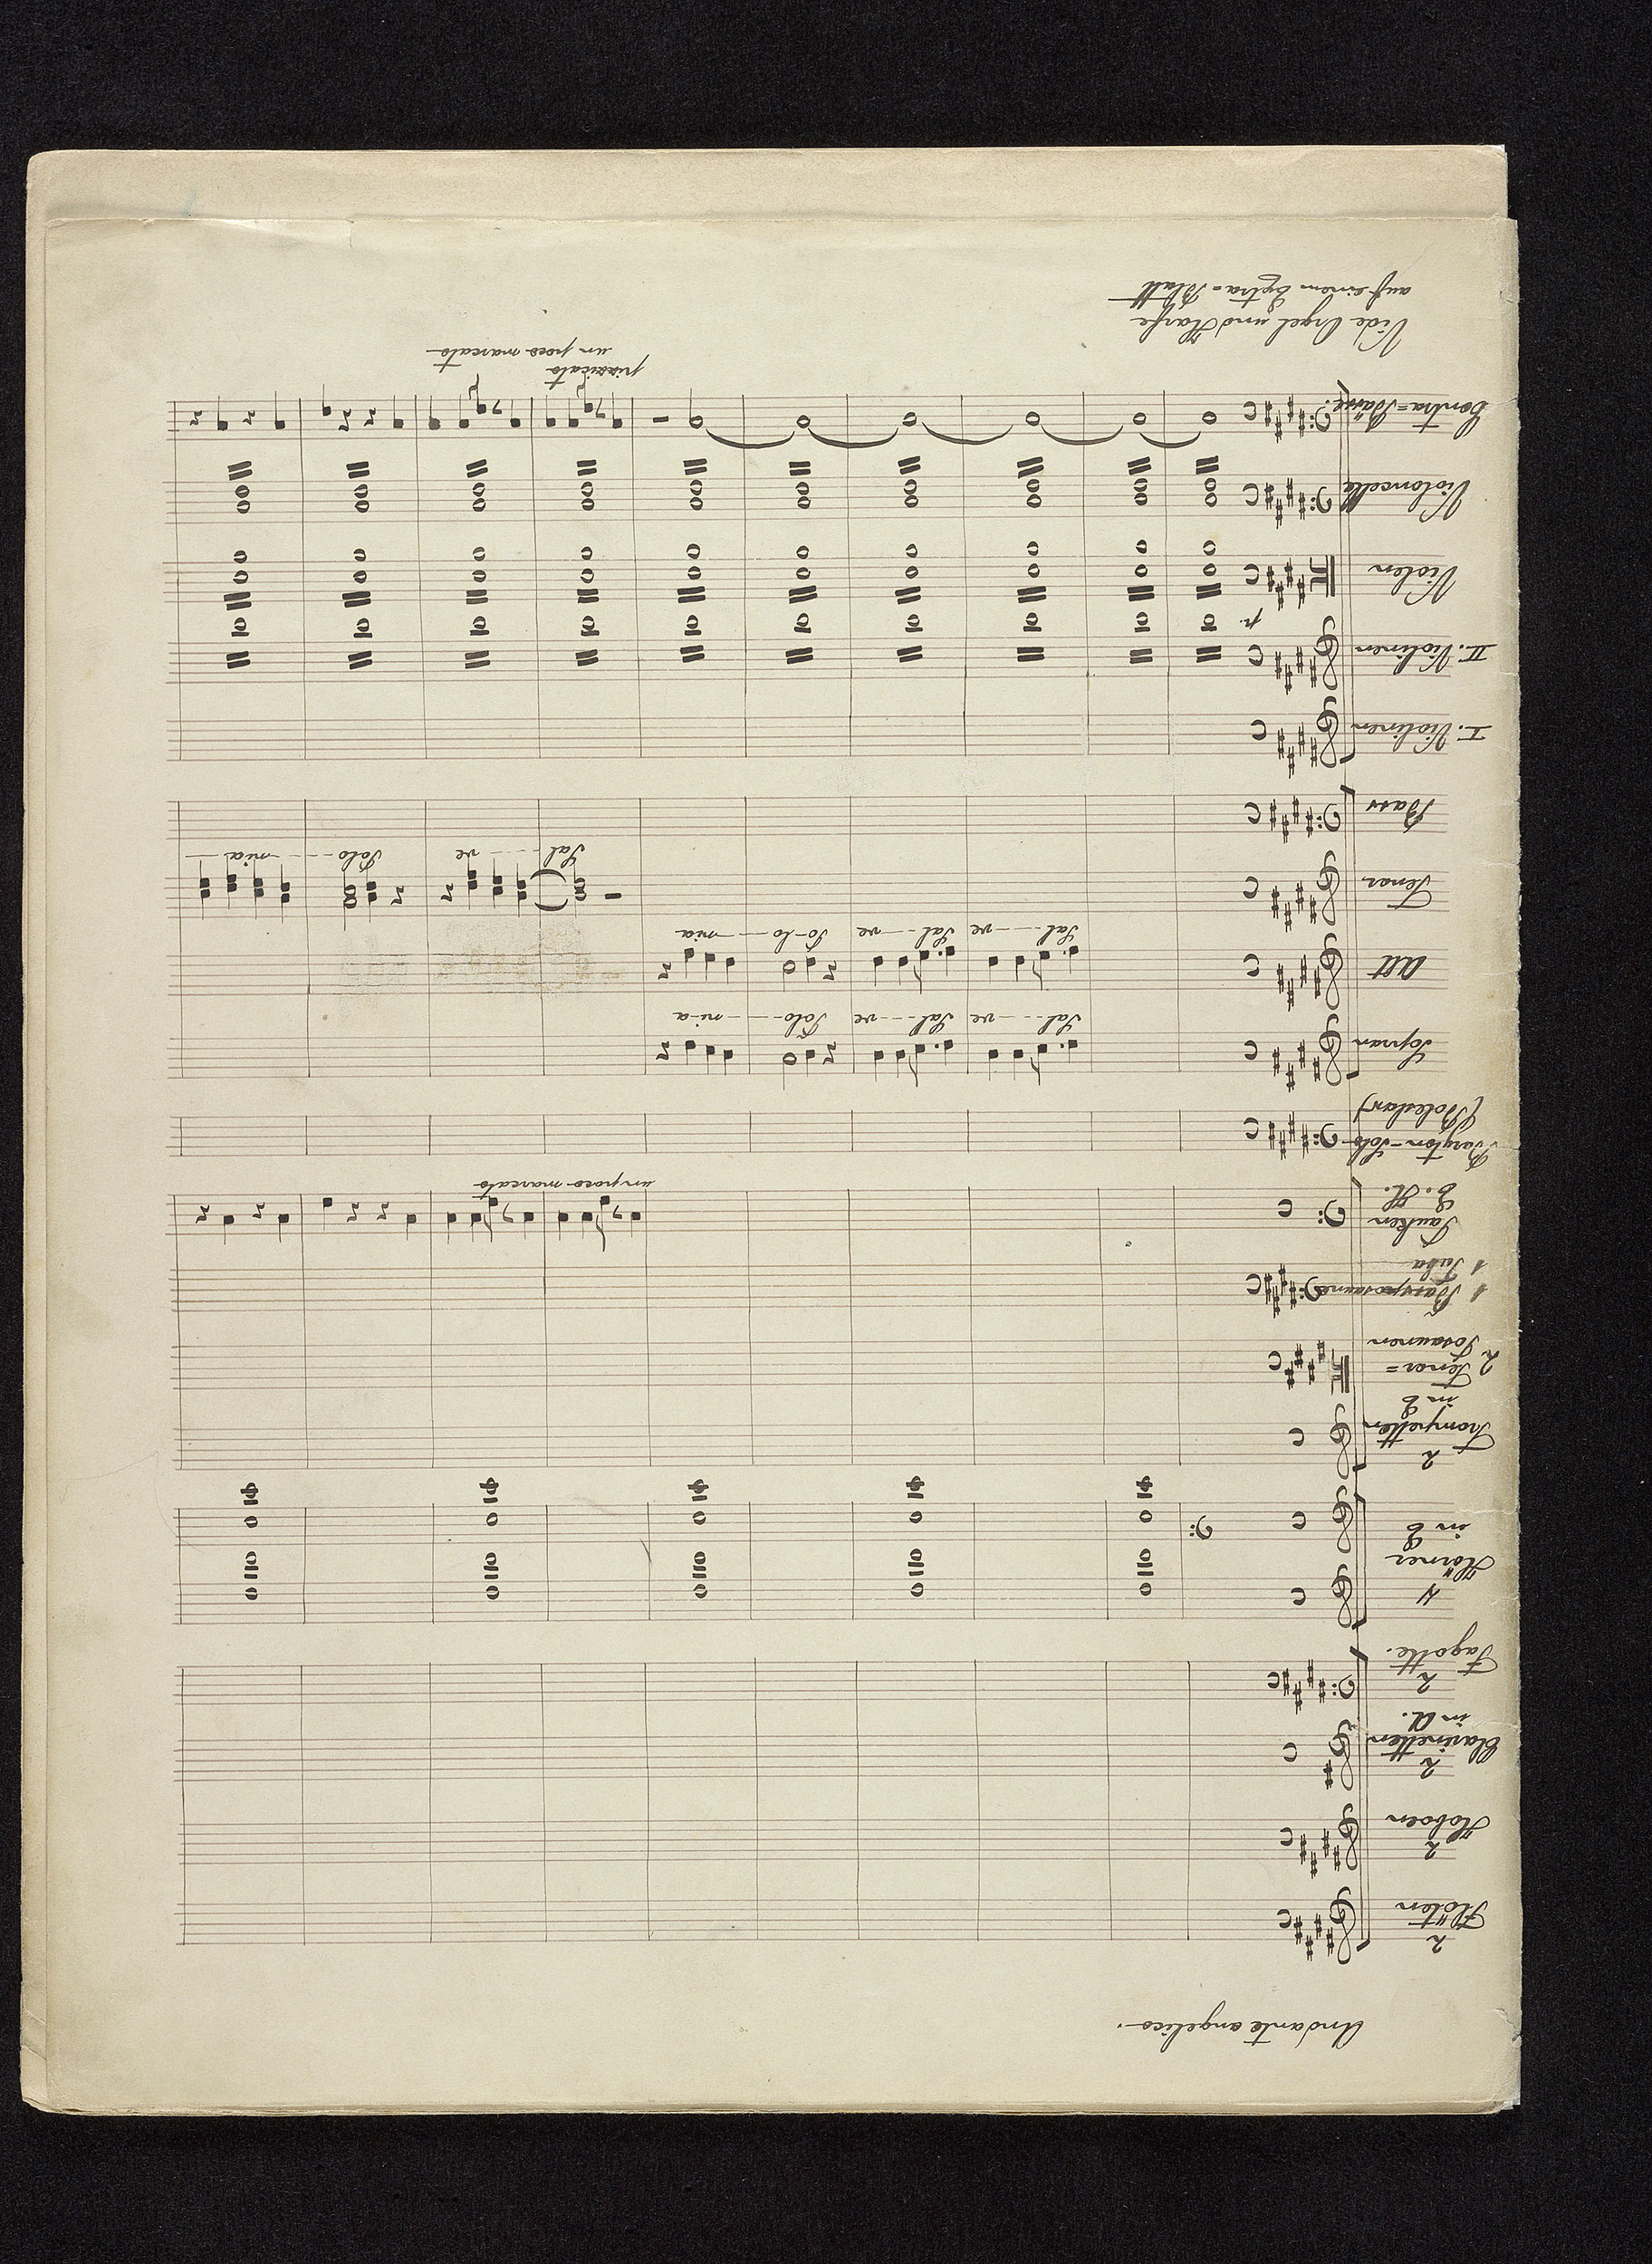 Andante angelico.
2
Flöten
2
Hoboen
2
Clarinetten
in A.
2
Fagotte.
4
Hörner
in E
2
Trompetten
in E
2 Tenor=
Posaunen
1 Bassposaune
1 Tuba
Pauken
E. H.
un poco marcato
Baryton-Solo
(Boleslav)
Sopran
Sal---ve Sal--ve Solo----ni-a
Alt
Sal---ve Sal--ve So-lo----nia
Tenor
Sal----ve Solo----nia
Bass
I. Violinen
II. Violinen
p.
Violen
Violoncelle
Contra=Bässe.
pizzicato
un poco marcato
Vide Orgel und Harfe
auf einem Extra=Blatt